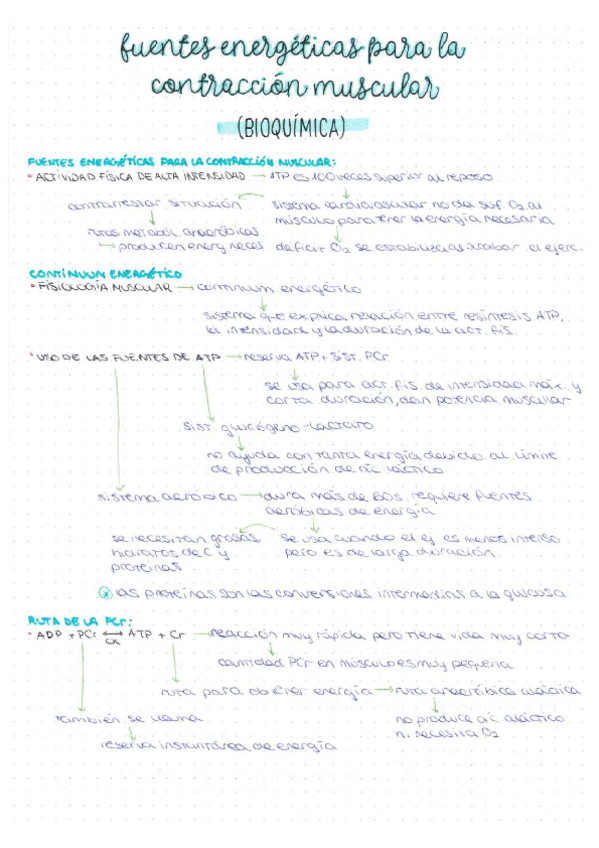 fuentes energéticas para la
contracción muscular
(BIOQUÍMICA)
FUENTES ENERGÉTICAS PARA LA CONTRACCIÓN MUSCULAR:
· ACTIVIDAD FÍSICA DE ALTA INTENSIDAD → ATP es 100 veces superior al reposo
contrarrestar situación ← sistema cardiovascular no da suf. O2 al
músculo para tener la energía necesaria
rutas metabol. anaeróbicas
→ producen energ neces. déficit O2 se estabiliza al acabar el ejerc.
CONTINUUM ENERGÉTICO
· FISIOLOGÍA MUSCULAR → continum energético
sistema que explica relación entre resíntesis ATP,
la intensidad y la duración de la act. fís.
· USO DE LAS FUENTES DE ATP → reserva ATP + Sist. PCr
se usa para act. fís. de intensidad máx. y
corta duración, dan potencia muscular
sist glucógeno-lactato
no ayuda con tanta energía debido al límite
de producción de ác láctico
sistema aeróbico → dura más de 60s. requiere fuentes
aeróbicas de energía
se necesitan grasas, se usa cuando el ej es menos intenso
hidratos de C y pero es de larga duración.
proteínas
las proteínas son las conversiones intermedias a la glucosa
RUTA DE LA PCr:
· ADP + PCr ⟷ ATP + Cr → reacción muy rápida pero tiene vida muy corta
CK
cantidad PCr en músculo es muy pequeña
ruta para obtener energía → ruta anaeróbica aláctica
también se llama no produce ác aláctico
ni necesita O2
reserva instantánea de energía